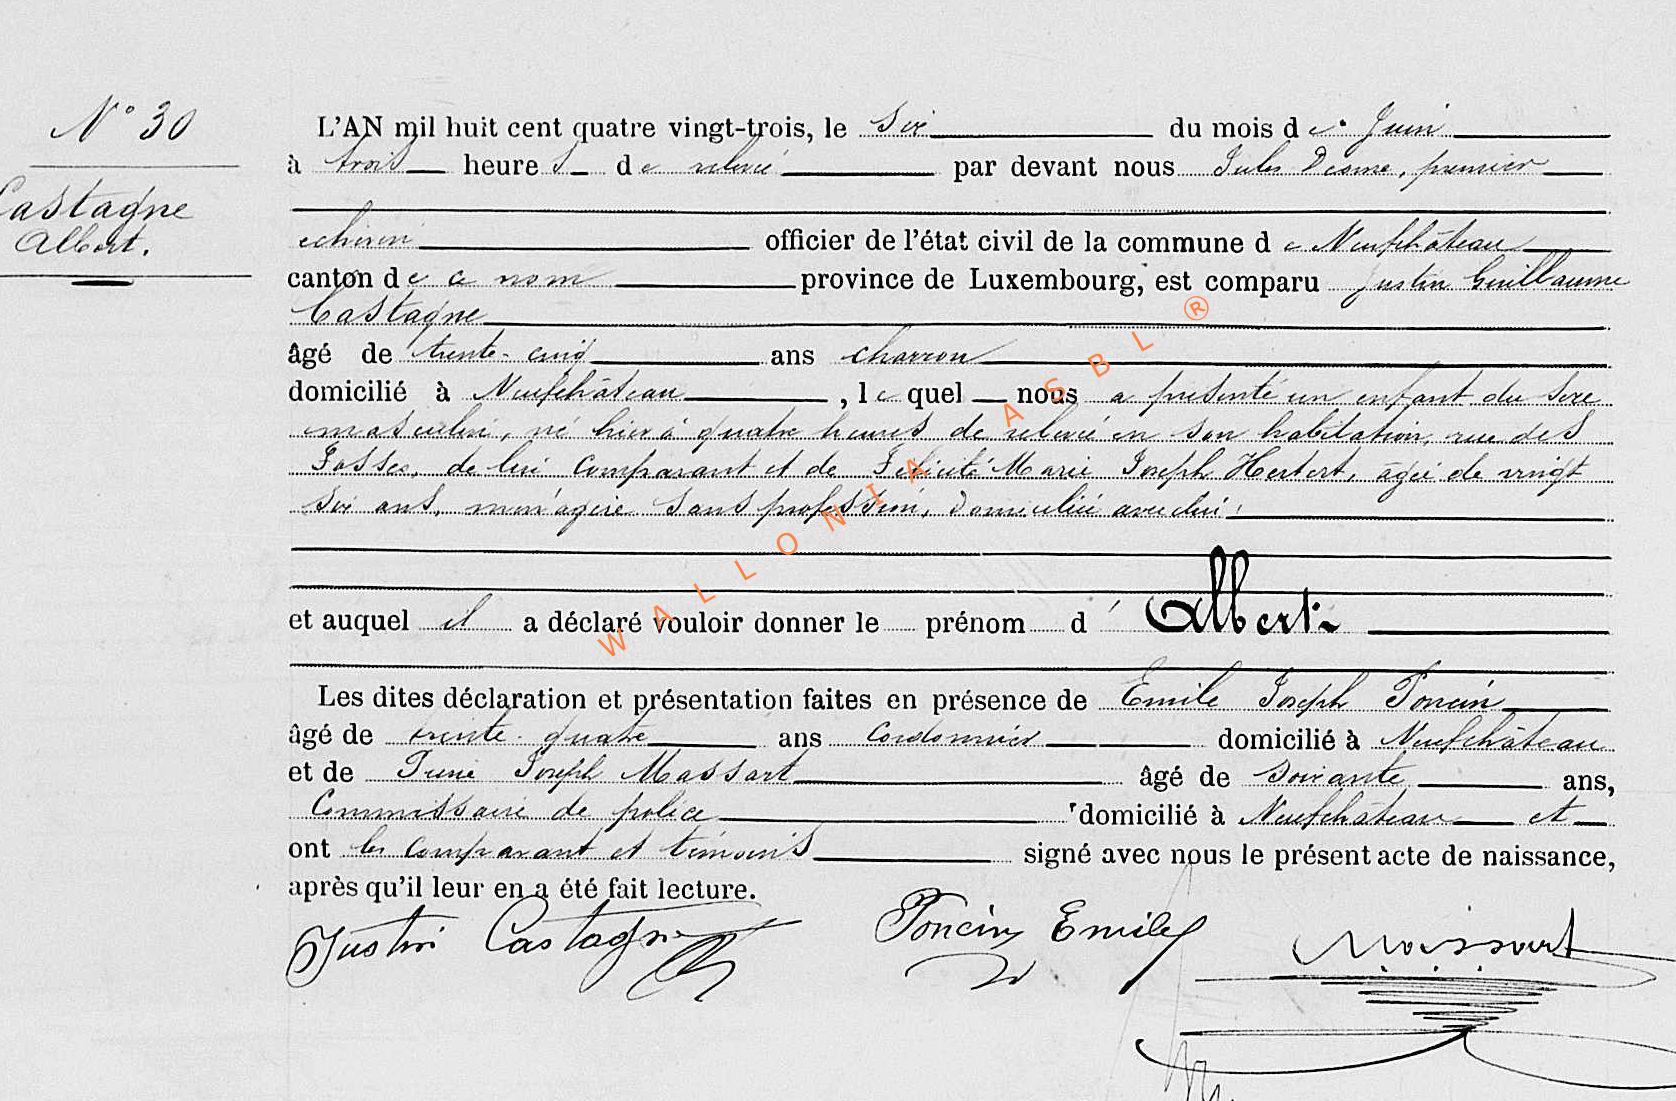 N° 30
Castagne
Albert.
L'AN mil huit cent quatre vingt-trois, le six du mois de Juin
à trois heures de relevé par devant nous Jules , premier
échevin officier de l'état civil de la commune de Neufchâteau
canton de ce nom province de Luxembourg, est comparu Justin Guillaume
Castagne
âgé de trente-cinq ans charron
domicilié à Neufchâteau, lequel nous a présenté un enfant du sexe
masculin, né hier à quatre heures de relevé en son habitation, rue des
Fosses, de lui comparant et de Félicité Marie Joseph Herbert, âgée de vingt
six ans, ménagère sans profession, domiciliée avec lui;
et auquel il a déclaré vouloir donner le prénom d'Albert
Les dites déclaration et présentation faites en présence de Emile Joseph Poncin
âgé de trente-quatre ans Cordonnier domicilié à Neufchâteau
et de Joseph Massart âgé de soixante ans,
Commissaire de police domicilié à Neufchâteau et
ont les comparant et témoins signé avec nous le présent acte de naissance,
après qu'il leur en a été fait lecture.
Justin Castagne Poncin Emile Massart
WALLONIA ASBL ®